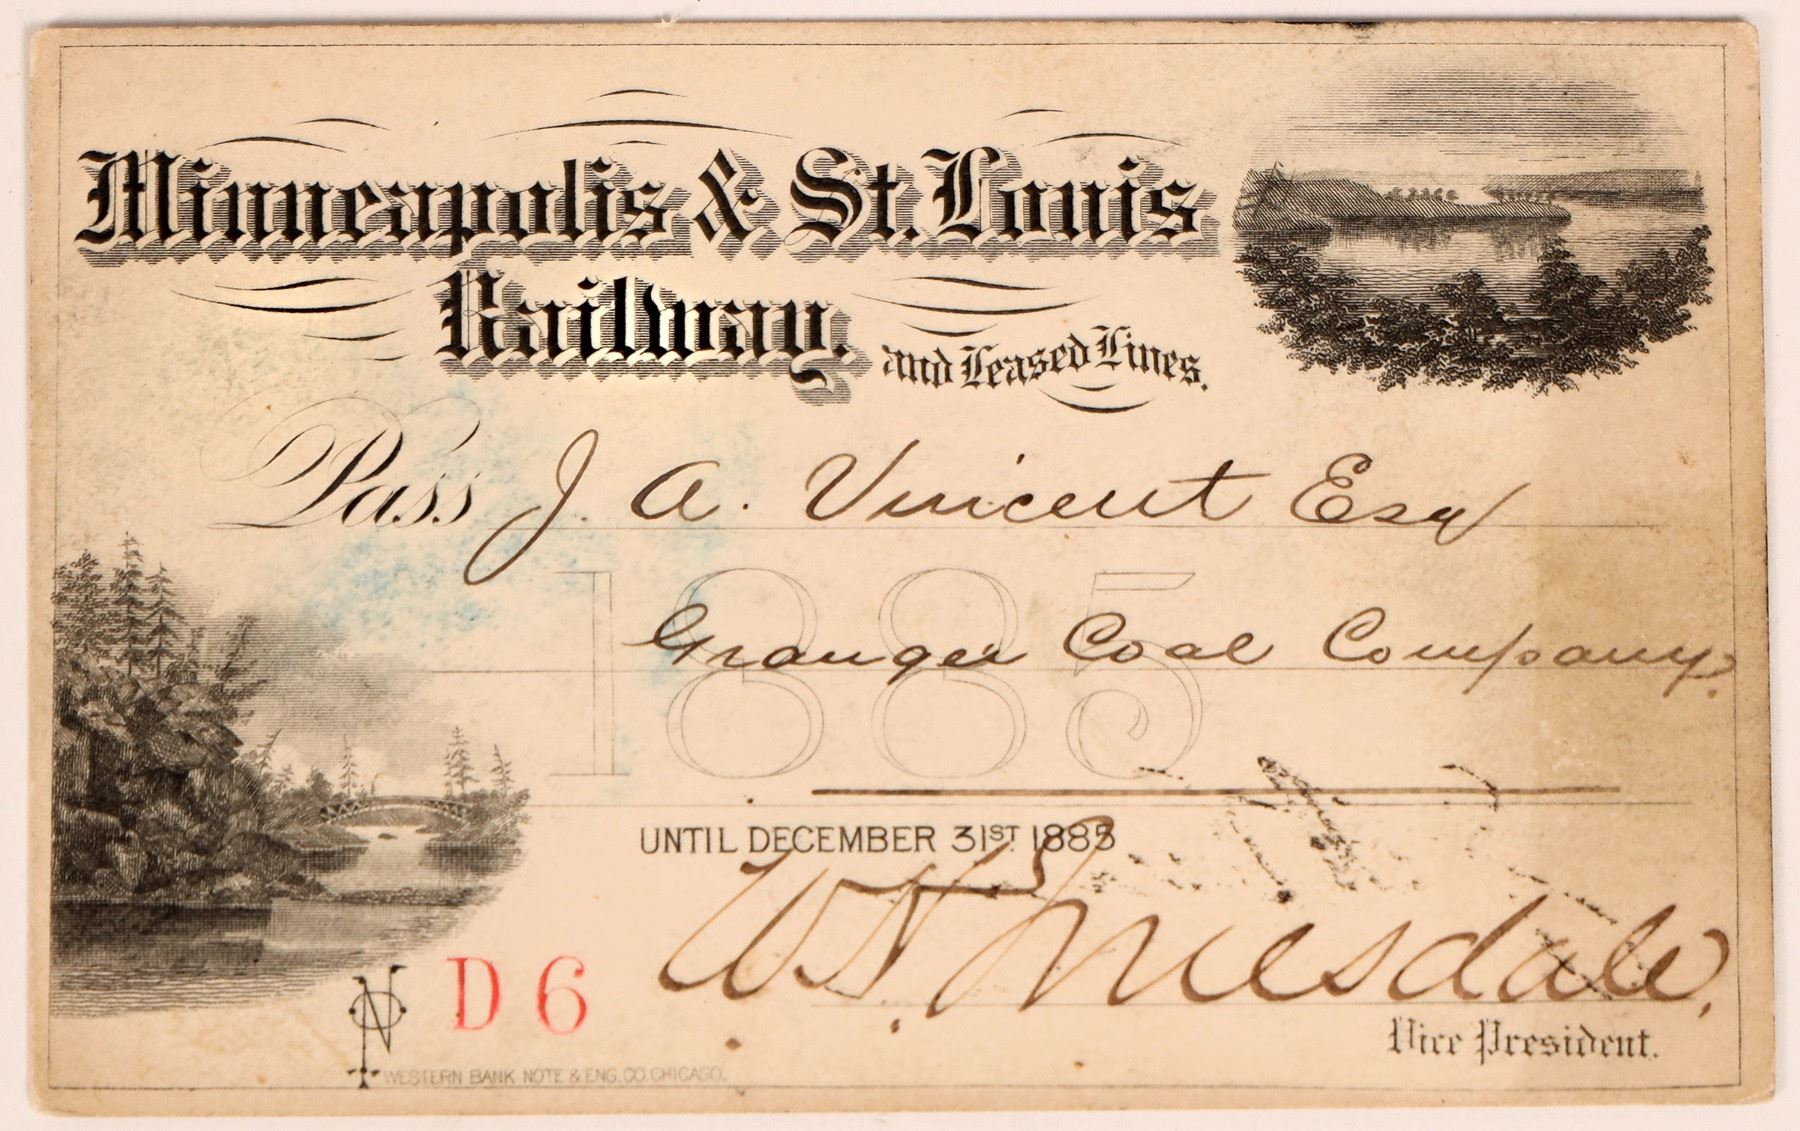 Minneapolis & St. Louis
Railway. and Leased Lines.
Pass J. A. Vincent Esq
1885
Granger Coal Company.
UNTIL DECEMBER 31ST 1885
W. H. Truesdale.
Vice President.
No D 6
WESTERN BANK NOTE & ENG. CO. CHICAGO.